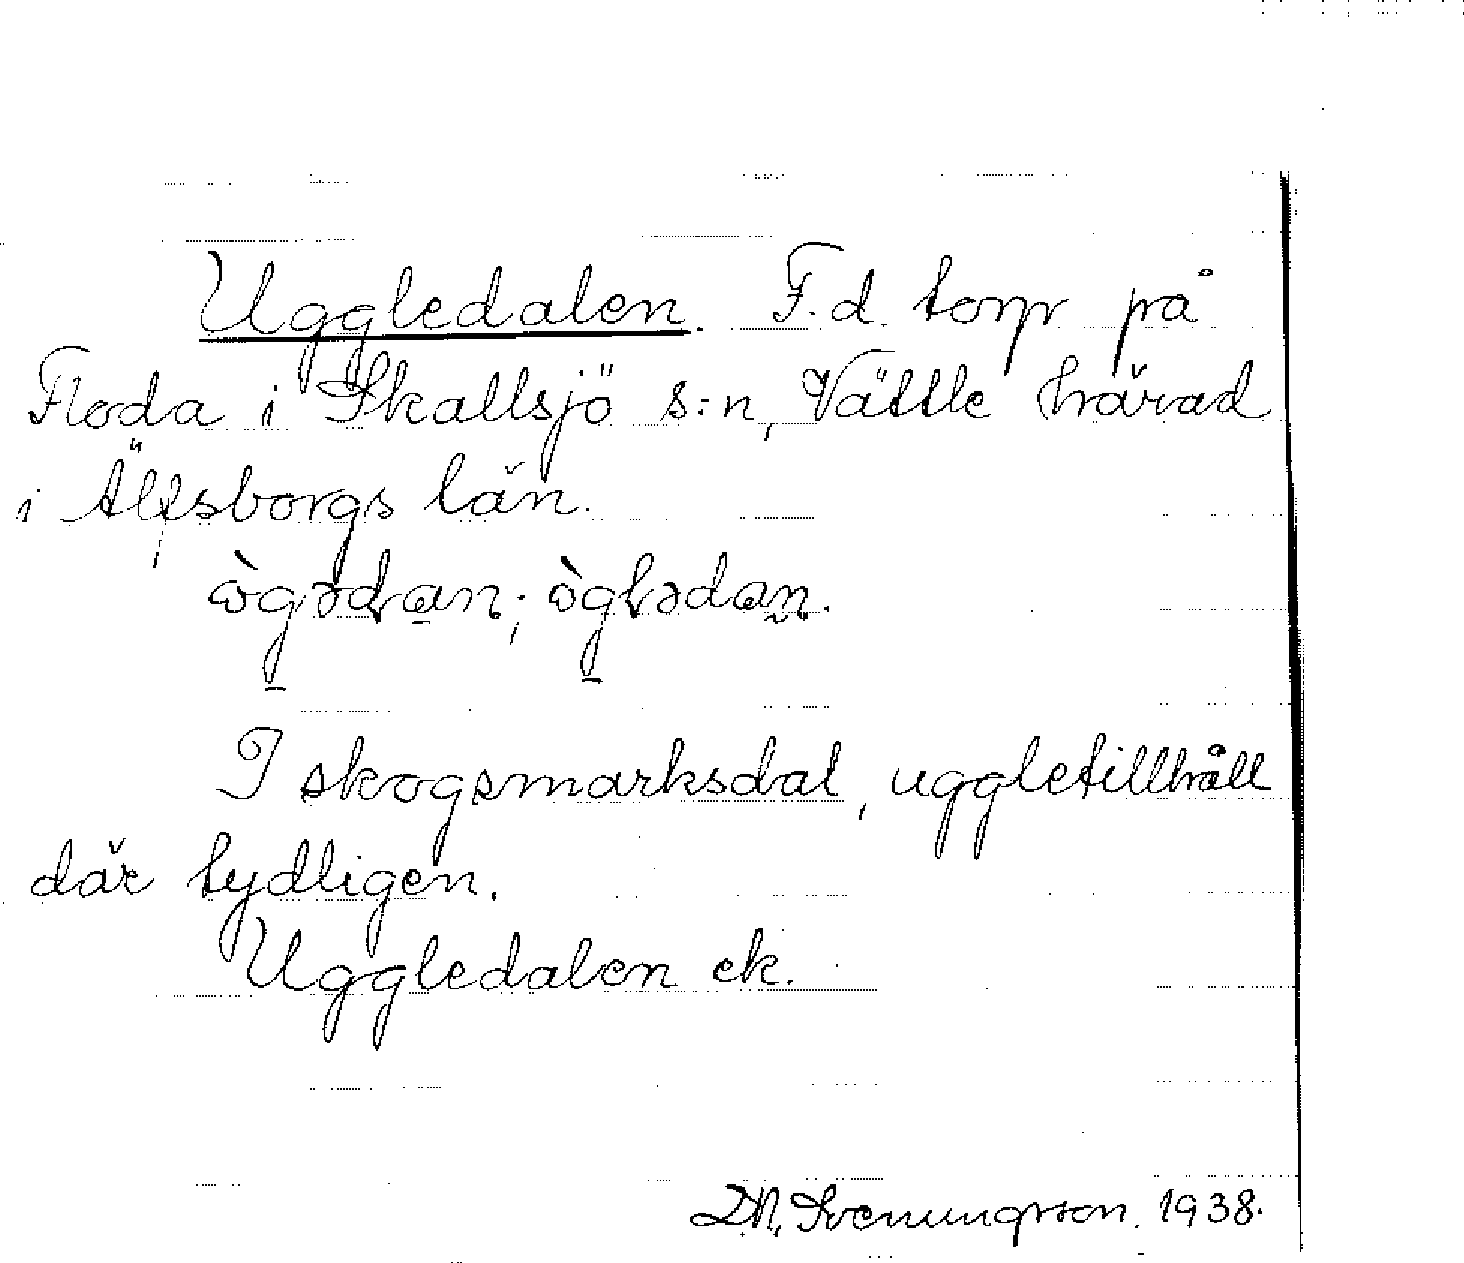 Uggledalen. F.d. torp på
Floda i Skallsjö s:n, Vättle härad
i Älfsborgs län.
ɷ̀gədan; ɷ̀glədan.
I skogsmarksdal, uggletillhåll
där tydligen.
Uggledalen ek.
Svenungsson. 1938.